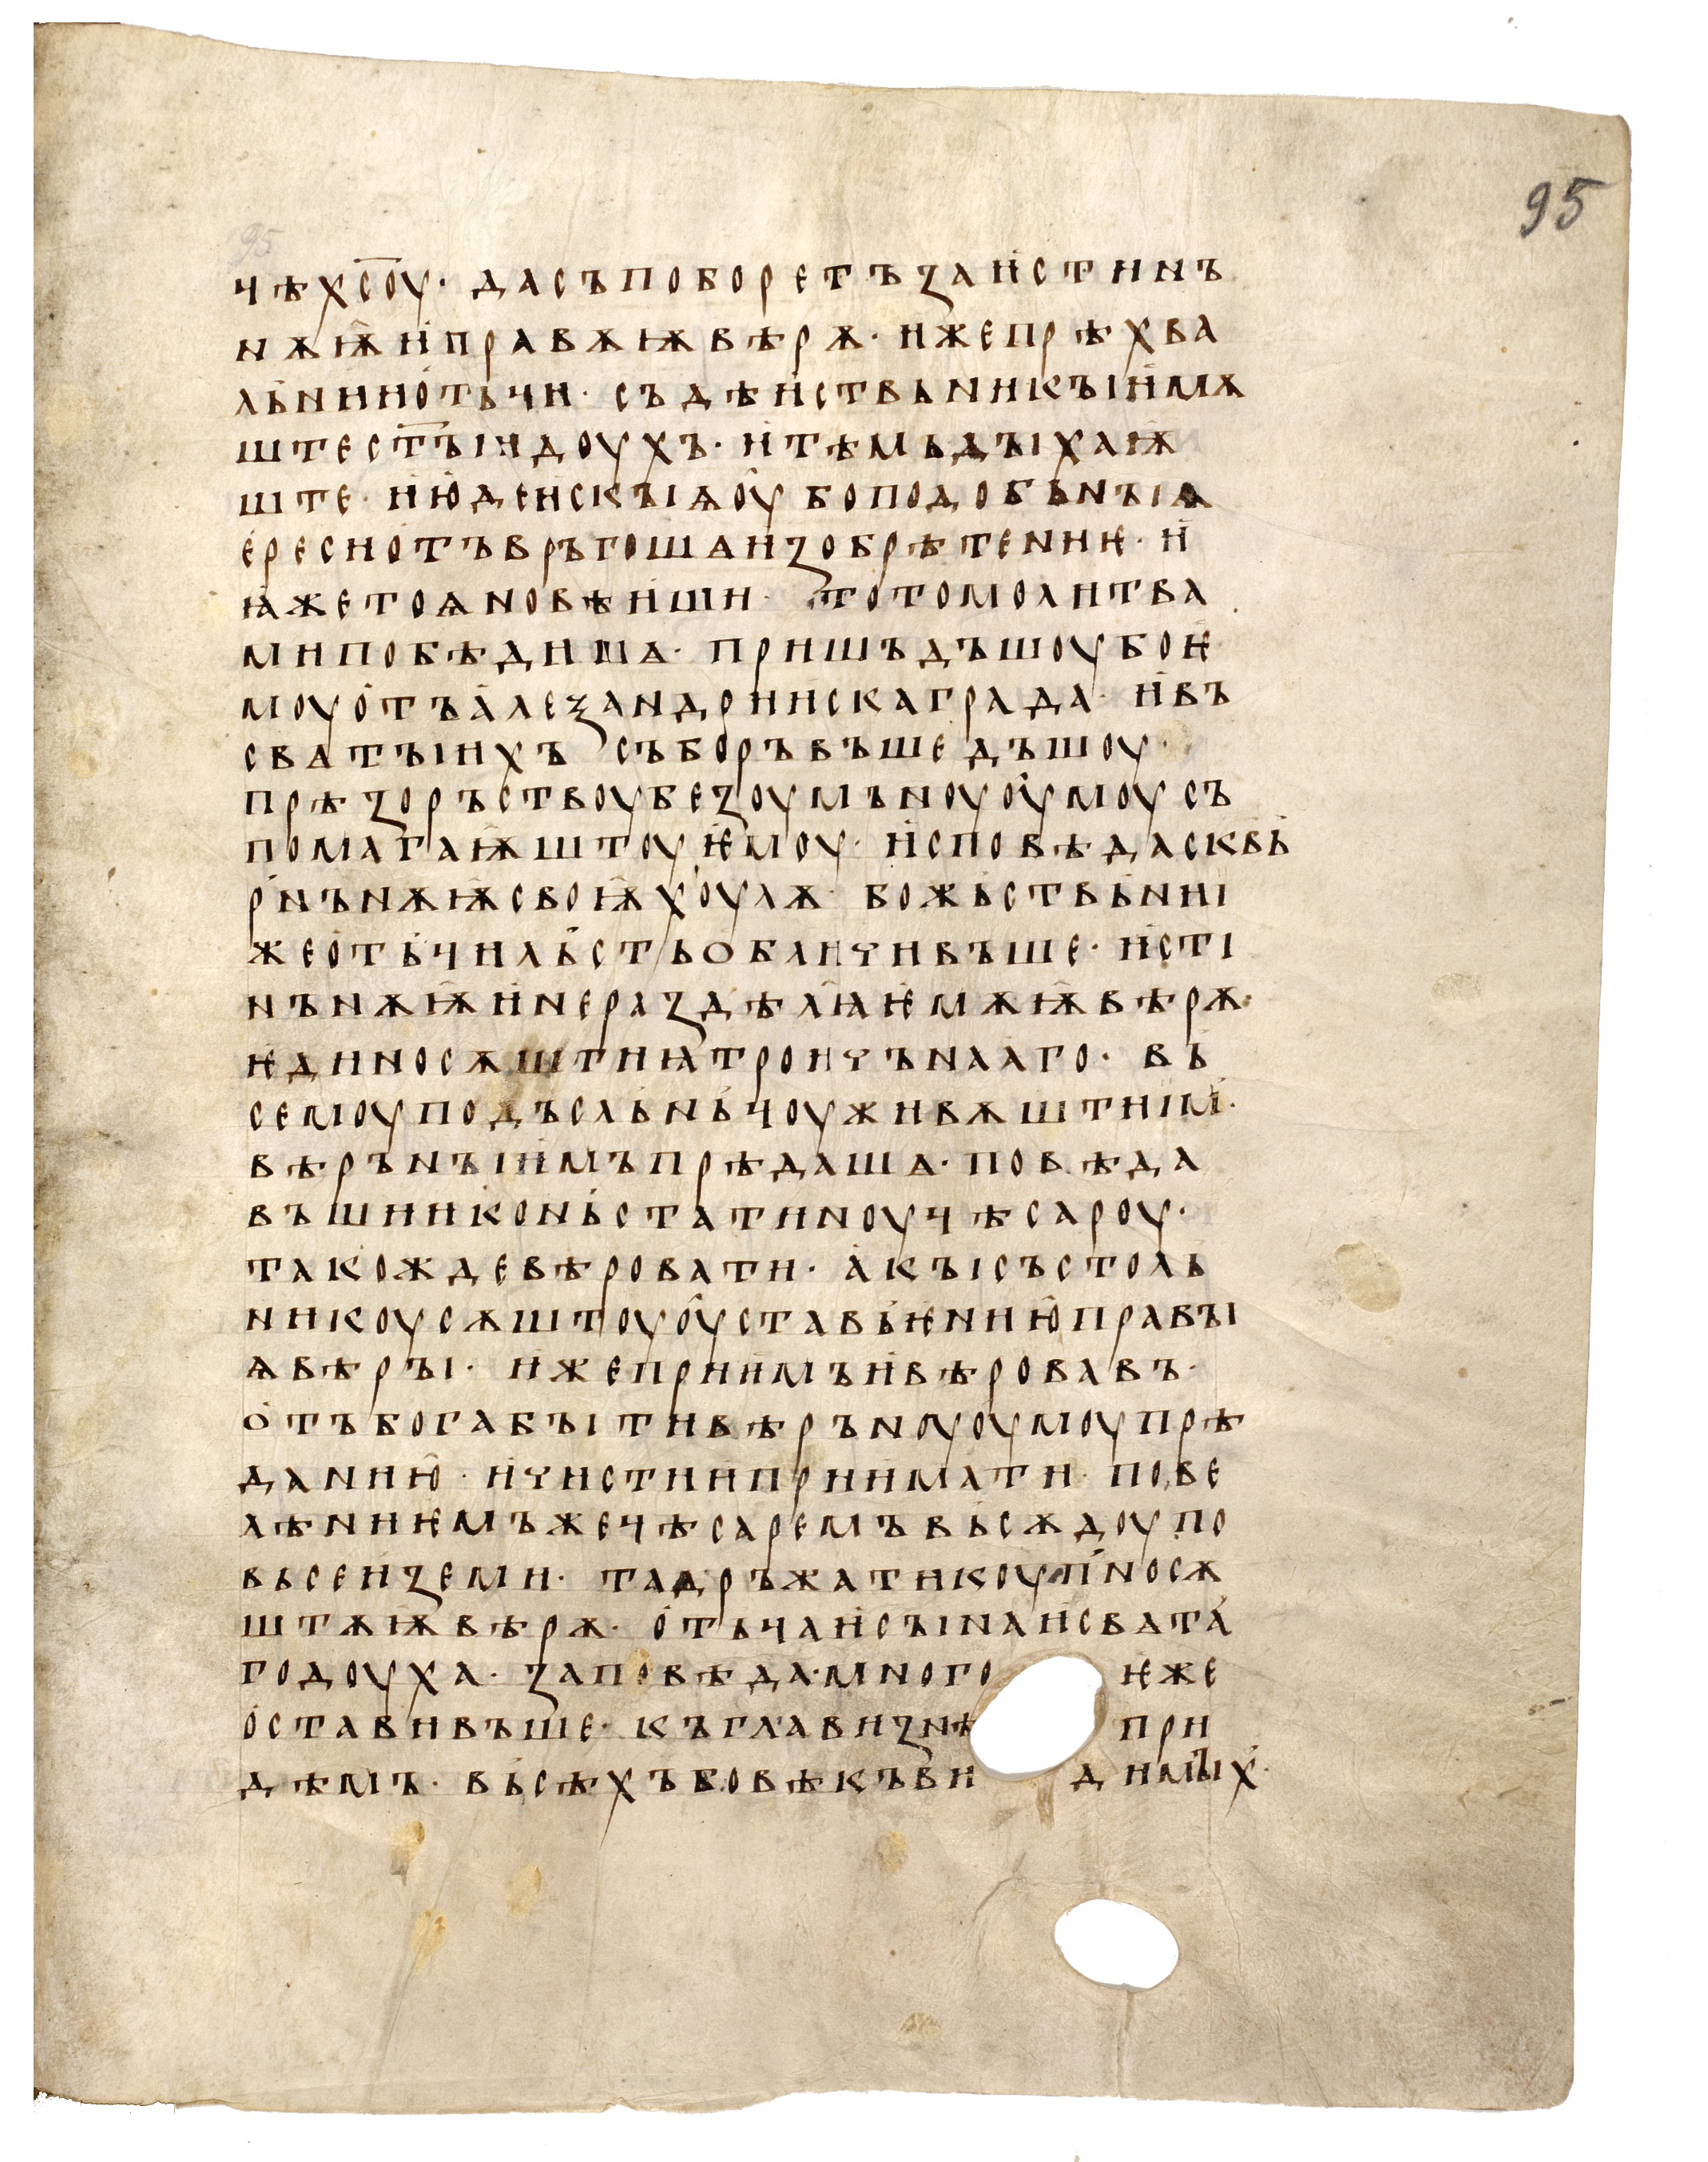 95
95
чѣхс҃оу· дасъпоборетъꙁаистинъ
нѫѭиправѫѭвѣрѫ· ижепрѣхва
льниіотьчи· съдѣиствьникꙑимѫ
штест҃ꙑидоухъ· итѣмьдꙑхаѭ
ште· июдеискꙑѩоубоподобьнꙑѩ
ересиотъвръгошѧиꙁобрѣтениѥ· и
ꙗжетоѩновѣишии· тотомолитва
мипобѣдишѧ· пришъдъшоубоѥ
моуотъалеѯандриискаграда· ивъ
свѧтꙑихъ съборъвъшедъшоу·
прѣꙁоръствоубеꙁоумъноуоумоусъ
помагаѭштоуѥмоу· исповѣдаскврь
рнънѫѭсвоѭхоулѫ· божьствьниі
жеотьчильстьобличивъше· исті
нънѫѭинераꙁдѣлꙗѥмѫѭвѣрѫ·
ѥдиносѫштиꙗтроичънааго· вь
семоуподъсльньчоуживѫштиим·
вѣрънꙑимъпрѣдашѧ· повѣда
въшииконьстатиноучѣсароу·
такождевѣровати· акꙑсъстоль
никоусѫштоуоуставьѥниюправꙑ
ѩвѣрꙑ· ижепри имъивѣровавъ·
отъбогабꙑтивѣръноуоумоупрѣ
данию· ичистииприимати· пове
лѣниѥмъжечѣсаремъвьсѫдоупо
вьсеиꙁеми· тадръжатикоупьносѫ
штѫѭвѣрѫ· отьчаисꙑнаисвѧта
годоуха· ꙁаповѣда·много ѥже
оставивъше· къглавиꙁнѣ при
дѣмъ· вьсѣхъбовѣкъви димꙑх·